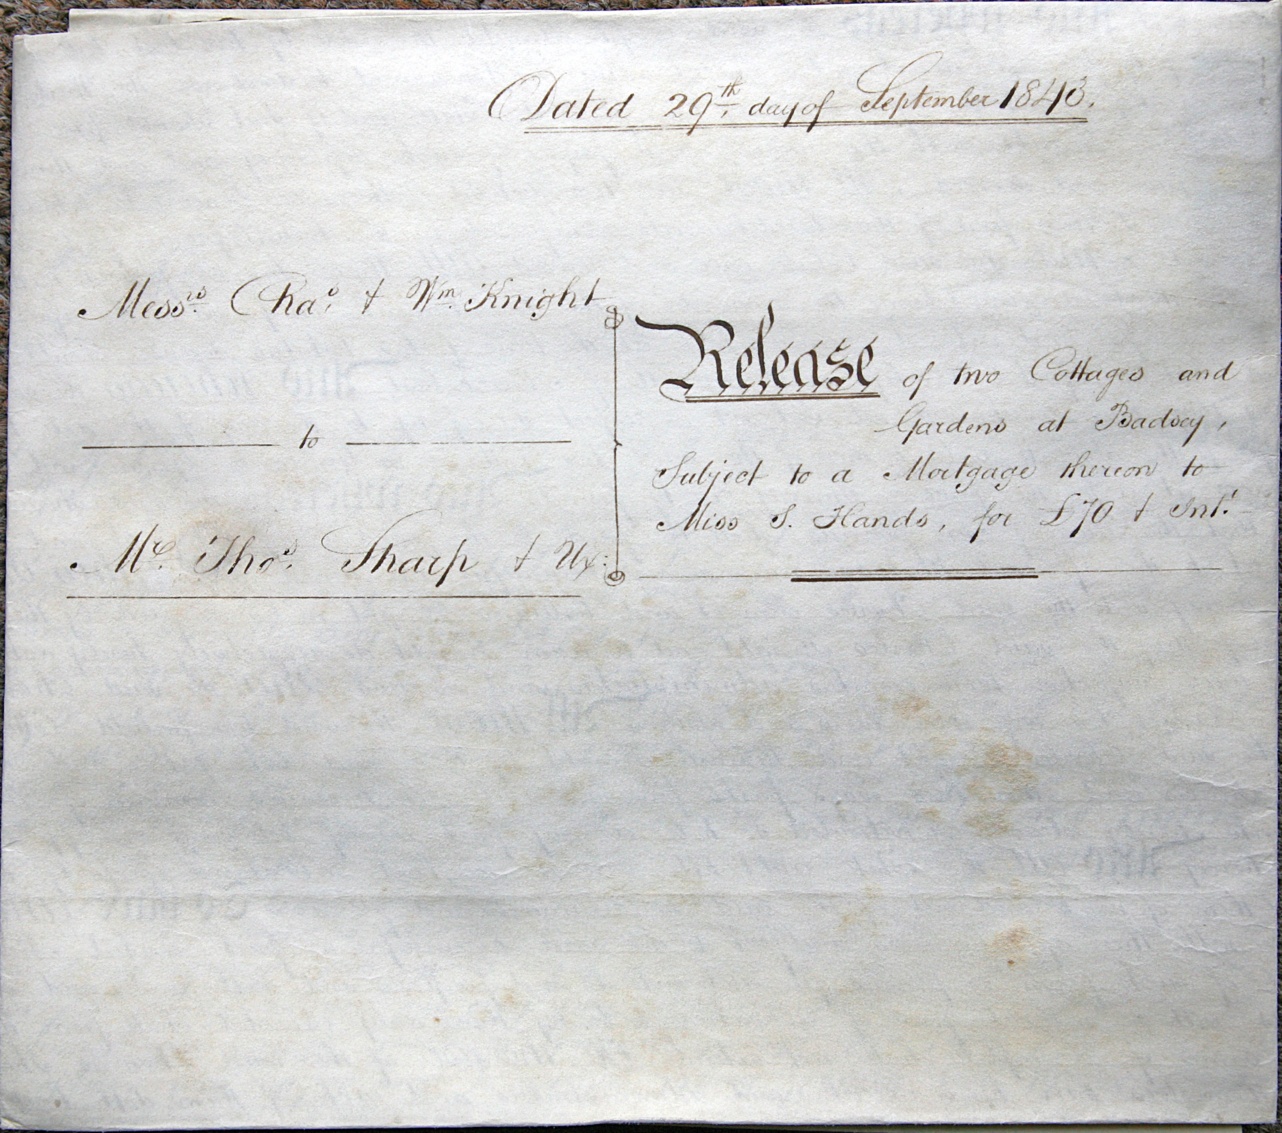 Dated 29th. day of September 1843.
Messrs. Chas. & Wm. Knight
to
Mr. Thos. Sharp & Ux:
Release of two Cottages and
Gardens at Badsey,
Subject to a Mortgage thereon to
Miss S. Hands, for £70 & Int.